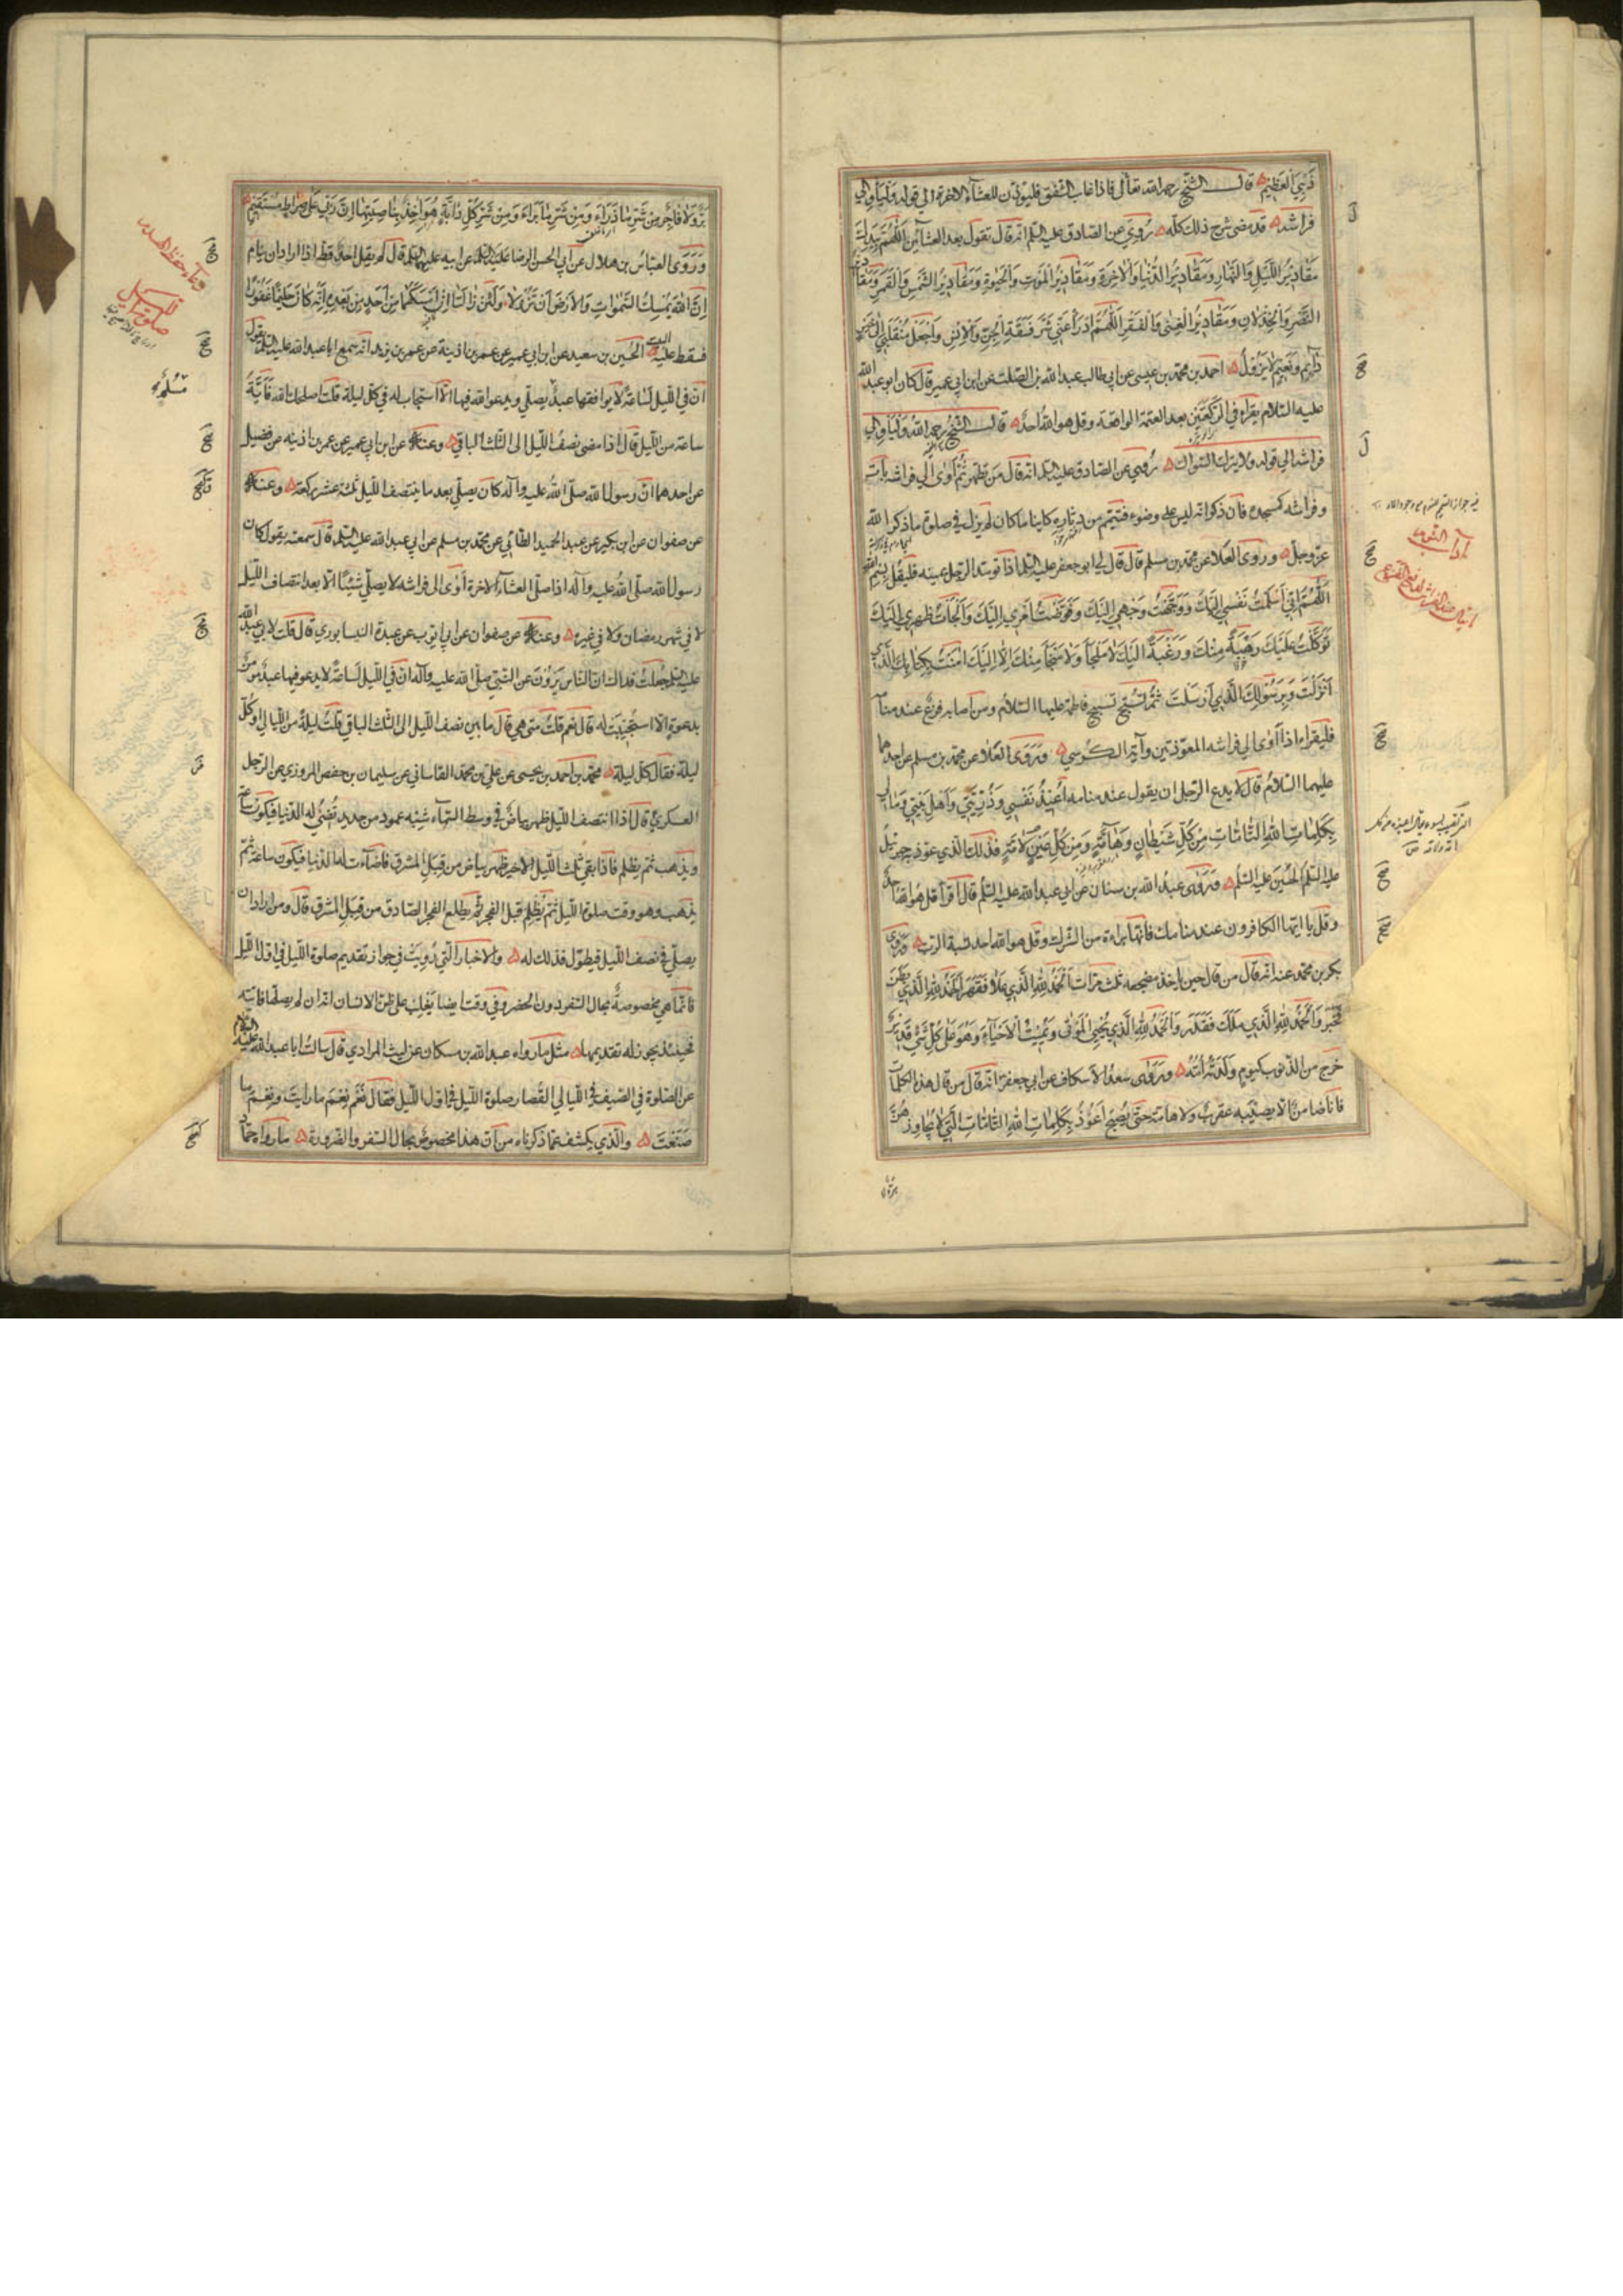 ذَنْبِيَ الْعَظِيمَ قال الشيخ رحمه الله تعالى فاذا غاب الشفق فليؤذن للعشاء الاخرة الى قوله وليأو الى
فراشه قد مضى شرح ذلك كله رُوِيَ عن الصادق عليه السلم انه قال تقول بعد العشائين اَللّهُمَّ بِيَدِكَ
مَقَادِيرُ اللَّيْلِ وَالنَّهَارِ وَمَقَادِيرُ الدُّنْيَا وَالْاخِرَةِ وَمَقَادِيرُ الْمَوْتِ وَالْحَيٰوةِ وَمَقَادِيرُ الشَّمْسِ وَالْقَمَرِ وَمَقَادِيرُ
النَّصْرِ وَالْخِذْلَانِ وَمَقَادِيرُ الْغِنٰى وَالْفَقْرِ اَللّهُمَّ ادْرَأْ عَنّى شَرَّ فَسَقَةِ الْجِنِّ وَالْاِنْسِ وَاجْعَلْ مُنْقَلَبِي اِلٰى خَيْرٍ
دَائِمٍ وَنَعِيمٍ لَا يَزُولُ احمد بن محمد بن عيسى عن ابي طالب عبد الله بن الصلت عن ابن ابي عمير قال كان ابو عبد الله
عليه السلام يقرأ في الركعتين بعد العتمة الواقعة وقل هو الله احد قال الشيخ رحمه الله وليأو الى
فراشه الى قوله ولا يترك السواك رُوِيَ عن الصادق عليه السلم انه قال من تطهر ثم اوى الى فراشه بات
وفراشه كمسجده فان ذكر انه ليس على وضوء فتيمم من دثاره كاينا ما كان لم يزل في صلوة ما ذكر الله
عز وجل وروى العلا عن محمد بن مسلم قال قال لي ابو جعفر عليه السلم اذا توسد الرجل يمينه فليقل بسم الله
اَللّهُمَّ اِنّي اَسْلَمْتُ نَفْسِي اِلَيْكَ وَوَجَّهْتُ وَجْهِي اِلَيْكَ وَفَوَّضْتُ اَمْرِي اِلَيْكَ وَاَلْجَأْتُ ظَهْرِي اِلَيْكَ
تَوَكَّلْتُ عَلَيْكَ رَهْبَةً مِنْكَ وَرَغْبَةً اِلَيْكَ لَا مَلْجَأَ وَلَا مَنْجَأَ مِنْكَ اِلَّا اِلَيْكَ امَنْتُ بِكِتَابِكَ الَّذِي
اَنْزَلْتَ وَبِرَسُولِكَ الَّذِي اَرْسَلْتَ ثم تسبح تسبيح فاطمة عليها السلام ومن اصابه فزع عند منامه
فليقرأ اذا اوى الى فراشه المعوذتين وآية الكرسي وروى العلا عن محمد بن مسلم عن احدهما
عليهما السلام قال لا يدع الرجل ان يقول عند منامه اُعِيذُ نَفْسِي وَذُرِّيَّتِي وَاَهْلَ بَيْتِي وَمَالِي
بِكَلِمَاتِ اللهِ التَّامَّاتِ مِنْ كُلِّ شَيْطَانٍ وَهَامَّةٍ وَمِنْ كُلِّ عَيْنٍ لَامَّةٍ فذلك الذي عوذ به جبرئيل
عليه السلم الحسين عليه السلم وروى عبد الله بن سنان عن ابي عبد الله عليه السلم قال اقرأ قل هو الله احد
وقل يا ايها الكافرون عند منامك فانها براءة من الشرك وقل هو الله احد نسبة الرب وروى
بكر بن محمد عنه انه قال من قال حين ياخذ مضجعه ثلث مرات اَلْحَمْدُ لِلّهِ الَّذِي عَلَا فَقَهَرَ اَلْحَمْدُ لِلّهِ الَّذِي بَطَنَ
فَخَبَرَ وَالْحَمْدُ لِلّهِ الَّذِي مَلَكَ فَقَدَرَ وَالْحَمْدُ لِلّهِ الَّذِي يُحْيِي الْمَوْتٰى وَيُمِيتُ الْاَحْيَاءَ وَهُوَ عَلٰى كُلِّ شَيْءٍ قَدِيرٌ
خرج من الذنوب كيوم ولدته امه وروى سعد الاسكاف عن ابي جعفر انه قال من قال هذه الكلمات
فانا ضامن الا يصيبه عقرب ولا هامة حتى يصبح اَعُوذُ بِكَلِمَاتِ اللهِ التَّامَّاتِ الَّتِي لَا يُجَاوِزُهُنَّ
آداب النوم
بَرٌّ وَلَا فَاجِرٌ مِنْ شَرِّ مَا ذَرَأَ وَمِنْ شَرِّ مَا بَرَأَ وَمِنْ شَرِّ كُلِّ دَابَّةٍ هُوَ اخِذٌ بِنَاصِيَتِهَا اِنَّ رَبّي عَلٰى صِرَاطٍ مُسْتَقِيمٍ
وروى العباس بن هلال عن ابي الحسن الرضا عليه السلم عن ابيه عليهما السلم قال لم يقل احد قط اذا اراد ان ينام
اِنَّ اللهَ يُمْسِكُ السَّمٰوَاتِ وَالْاَرْضَ اَنْ تَزُولَا وَلَئِنْ زَالَتَا اِنْ اَمْسَكَهُمَا مِنْ اَحَدٍ مِنْ بَعْدِهِ اِنَّهُ كَانَ حَلِيمًا غَفُورًا
فسقط عليه البيت الحسين بن سعيد عن ابن ابي عمير عن عمر بن اذينة عن عمر بن يزيد انه سمع ابا عبد الله عليه السلم يقول
ان في الليل لساعة لا يوافقها عبد يصلي ويدعو الله فيها الا استجاب له في كل ليلة قلت اصلحك الله فاية
ساعة من الليل قال اذا مضى نصف الليل الى الثلث الباقي وعنه عن ابن ابي عمير عن عمر بن اذينه عن فضيل
عن احدهما ان رسول الله صلى الله عليه وآله كان يصلي بعد ما ينتصف الليل ثلث عشر ركعة وعنه
عن صفوان عن ابن بكير عن عبد الحميد الطائي عن محمد بن مسلم عن ابي عبد الله عليه السلم قال سمعته يقول كان
رسول الله صلى الله عليه وآله اذا صلى العشاء الاخرة اوى الى فراشه لا يصلي شيئا الا بعد انتصاف الليل
لا في شهر رمضان ولا في غيره وعنه عن صفوان عن ابي ايوب عن عبدة النيسابوري قال قلت لابي عبد الله
عليه السلم جعلت فداك ان الناس يروون عن النبي صلى الله عليه وآله ان في الليل لساعة لا يدعو فيها عبد مؤمن
بدعوة الا استجيبت له قال نعم قلت متى هي قال ما بين نصف الليل الى الثلث الباقي قلت ليلة من الليالي او كل
ليلة فقال كل ليلة محمد بن احمد بن يحيى عن علي بن محمد القاساني عن سليمان بن حفص المروزي عن الرجل
العسكري قال اذا انتصف الليل ظهر بياض في وسط السماء شبه عمود من حديد تضيء له الدنيا فيكون ساعة
ويذهب ثم يظلم فاذا بقي ثلث الليل الاخير ظهر بياض من قبل المشرق فاضاءت له الدنيا فيكون ساعة ثم
يذهب وهو وقت صلوة الليل ثم يظلم قبل الفجر ثم يطلع الفجر الصادق من قبل المشرق قال ومن اراد ان
يصلي في نصف الليل فيطول فذلك له والاخبار التي رويت في جواز تقديم صلوة الليل في اول الليل
فانما هي مخصوصة بحال السفر دون الحضر وفي وقت ايضا يغلب على ظن الانسان انه ان لم يصلها فاتته
فحينئذ يجوز له تقديمها مثل ما رواه عبد الله بن مسكان عن ليث المرادي قال سالت ابا عبد الله عليه السلام
عن الصلوة في الصيف في الليالي القصار صلوة الليل في اول الليل فقال نعم نعم ما رايت ونعم ما
صنعت والذي يكشف عما ذكرناه من ان هذا مخصوص بحال السفر والضرورة ما رواه حماد